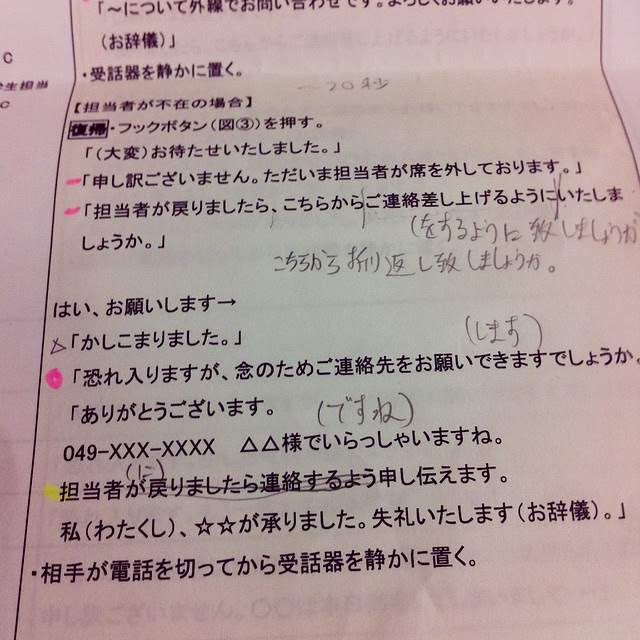 「～について外線でお問い合わせです。よろしくお願いいたします。
（お辞儀）」
・受話器を静かに置く。
C
生担当
C
20秒
【担当者が不在の場合】
復帰・フックボタン（図③）を押す。
「（大変）お待たせいたしました。」
「申し訳ございません。ただいま担当者が席を外しております。」
「担当者が戻りましたら、こちらからご連絡差し上げるようにいたしま
しょうか。」
（をするように致しましょうか
こちらから折り返し致しましょうか。
はい、お願いします→
△「かしこまりました。」
（します）
「恐れ入りますが、念のためご連絡先をお願いできますでしょうか。
「ありがとうございます。
（ですね）
049-XXX-XXXX　△△様でいらっしゃいますね。
（に）
担当者が戻りましたら連絡するよう申し伝えます。
私（わたくし）、☆☆が承りました。失礼いたします（お辞儀）。」
・相手が電話を切ってから受話器を静かに置く。